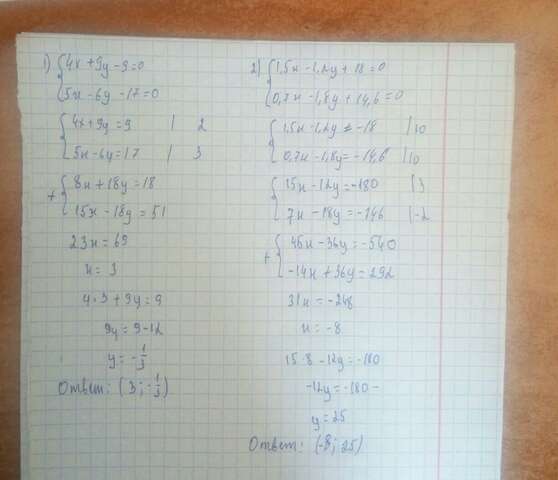 1) 4x + 9y - 9 = 0
5x - 6y - 17 = 0
4x + 9y = 9 | 2
5x - 6y = 17 | 3
+ 8x + 18y = 18
15x - 18y = 51
23x = 69
x = 3
4·3 + 9y = 9
9y = 9 - 12
y = -1/3
Ответ: (3; -1/3)
2) 1,5x - 1,2y + 18 = 0
0,7x - 1,8y + 14,6 = 0
1,5x - 1,2y = -18 | 10
0,7x - 1,8y = -14,6 | 10
15x - 12y = -180 | 3
7x - 18y = -146 | -2
+ 45x - 36y = -540
-14x + 36y = 292
31x = -248
x = -8
15·8 - 12y = -180
-12y = -180 -
y = 25
Ответ: (-8; 25)